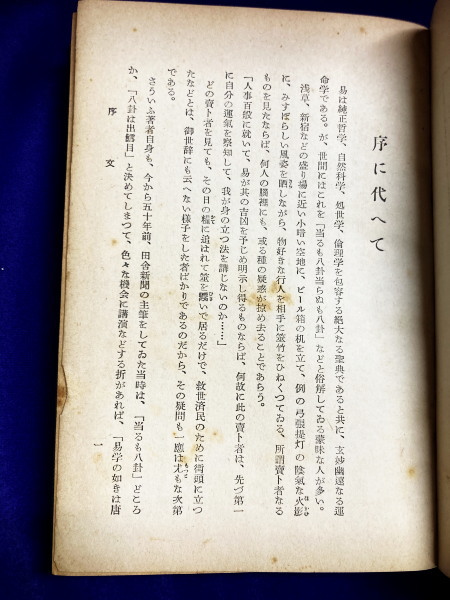 序に代へて
易は純正哲学、自然科学、処世学、倫理学を包容する絶大なる聖典であると共に、玄妙幽遠なる運
命学である。が、世間にはこれを「当るも八卦当らぬも八卦」などと俗解してゐる蒙昧な人が多い。
浅草、新宿などの盛り場に近い小暗い空地に、ビール箱の机を立て、例の弓張提灯の陰氣な火影
に、みすぼらしい風姿を晒しながら、物好きな行人を相手に筮竹をひねくつてゐる、所謂賣卜者なる
ものを見たならば、何人の腦裡にも、或る種の疑惑が掠め去ることであらう。
「人事百般に就いて、易が其の吉凶を予じめ明示し得るものならば、何故に此の賣卜者は、先づ第一
に自分の運氣を察知して、我が身の立つ法を講じないのか……」
どの賣卜者を見ても、その日の糧に追はれて筮を鬻いで居るだけで、救世済民のために街頭に立つ
たなどとは、御世辞にも云へない様子をした者ばかりであるのだから、その疑問も一應は尤もな次第
である。
さういふ著者自身も、今から五十年前、田舎新聞の主筆をしてゐた当時は、「当るも八卦」どころ
か、「八卦は出鱈目」と決めてしまつて、色々な機会に講演などする折があれば、「易学の如きは唐
序文
一